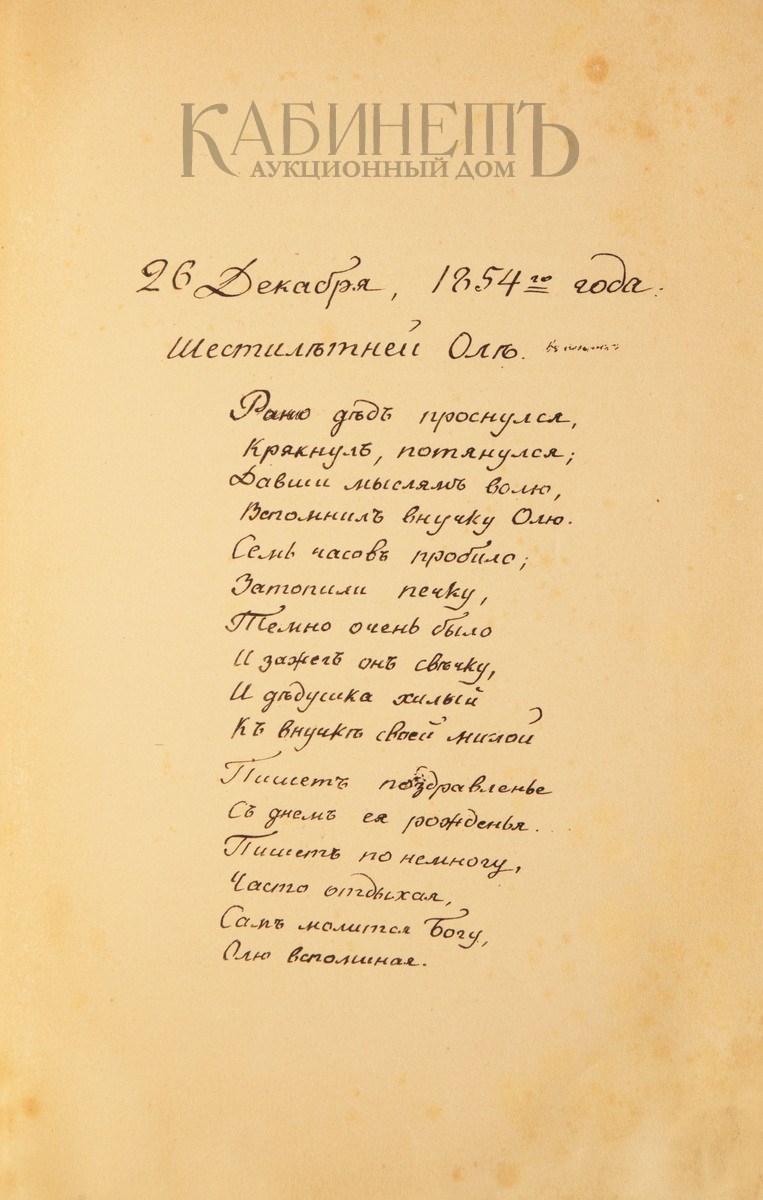 КАБИНЕТЪ
АУКЦИОННЫЙ ДОМ
26 Декабря, 1854го года.
Шестилѣтней Олѣ.
Рано дѣдъ проснулся,
Крякнулъ, потянулся;
Давши мыслямъ волю,
Вспомнилъ внучку Олю.
Семь часовъ пробило;
Затопили печку,
Темно очень было
И зажегъ онъ свѣчку,
И дѣдушка хилый
Къ внучкѣ своей милой
Пишетъ поздравленье
Съ днемъ ея рожденья.
Пишетъ по немногу,
Часто отдыхая,
Самъ молится Богу,
Олю вспоминая.